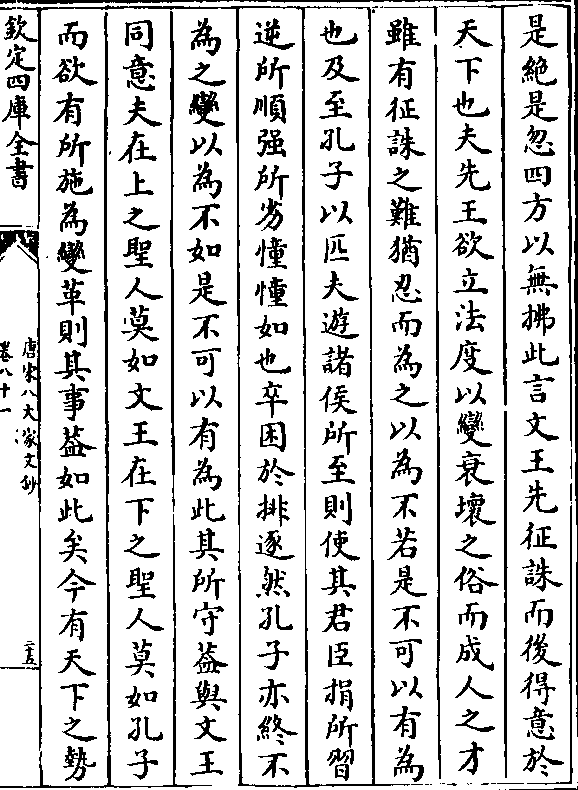 是絶是忽四方以無拂此言文王先征誅而後得意於
天下也夫先王欲立法度以變衰壞之俗而成人之才
雖有征誅之難猶忍而為之以為不若是不可以有為
也及至孔子以匹夫遊諸侯所至則使其君臣捐所習
逆所順强所劣憧憧如也卒困於排逐然孔子亦終不
為之變以為不如是不可以有為此其所守葢與文王
同意夫在上之聖人莫如文王在下之聖人莫如孔子
而欲有所施為變革則其事葢如此矣今有天下之勢
欽定四庫全書
唐宋八大家文鈔
卷八十一
二五